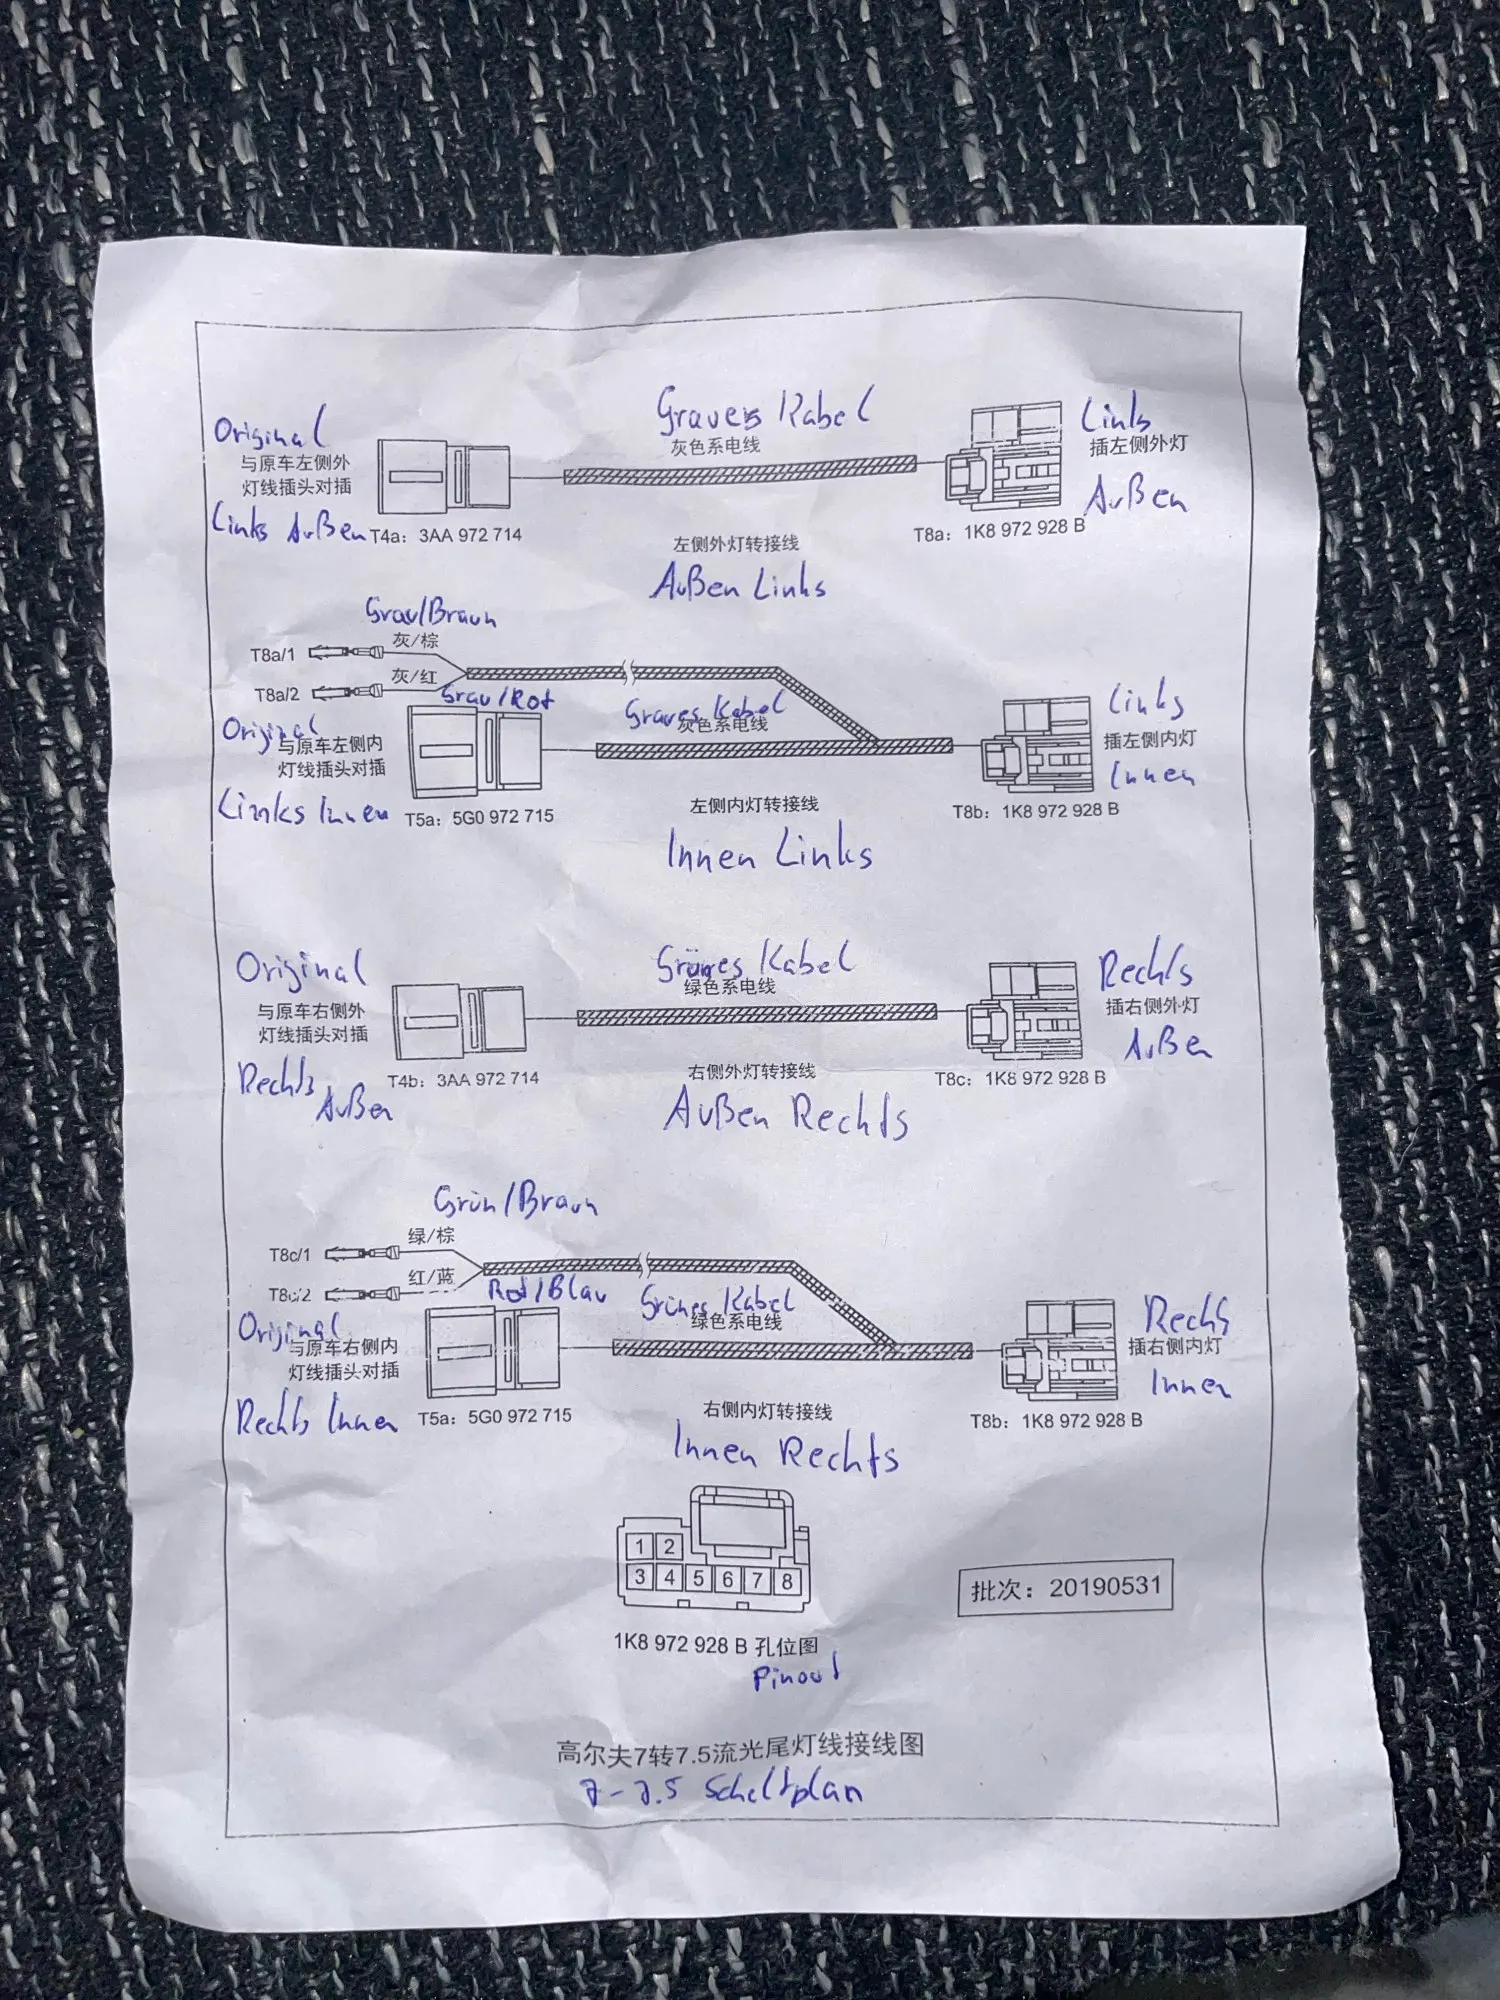 Original
Graues Kabel
Links
与原车左侧外
灰色系电线
插左侧外灯
灯线插头对插
Außen
Links Außen
T4a: 3AA 972 714
T8a: 1K8 972 928 B
左侧外灯转接线
Außen Links
Grau/Braun
T8a/1
灰/棕
T8a/2
灰/红
Grau/Rot
Original
Graues Kabel
Links
与原车左侧内
灰色系电线
插左侧内灯
灯线插头对插
Innen
Links Innen
T5a: 5G0 972 715
左侧内灯转接线
T8b: 1K8 972 928 B
Innen Links
Original
Grünes Kabel
Rechts
与原车右侧外
绿色系电线
插右侧外灯
灯线插头对插
Außen
Rechts
Außen
T4b: 3AA 972 714
右侧外灯转接线
T8c: 1K8 972 928 B
Außen Rechts
Grün/Braun
T8c/1
绿/棕
T8c/2
红/蓝
Rot/Blau
Original
Grünes Kabel
Rechts
与原车右侧内
绿色系电线
插右侧内灯
灯线插头对插
Innen
Rechts Innen
T5a: 5G0 972 715
右侧内灯转接线
T8b: 1K8 972 928 B
Innen Rechts
1 2
3 4 5 6 7 8
批次: 20190531
1K8 972 928 B 孔位图
Pinout
高尔夫7转7.5流光尾灯线接线图
7-7.5 Scheltplan